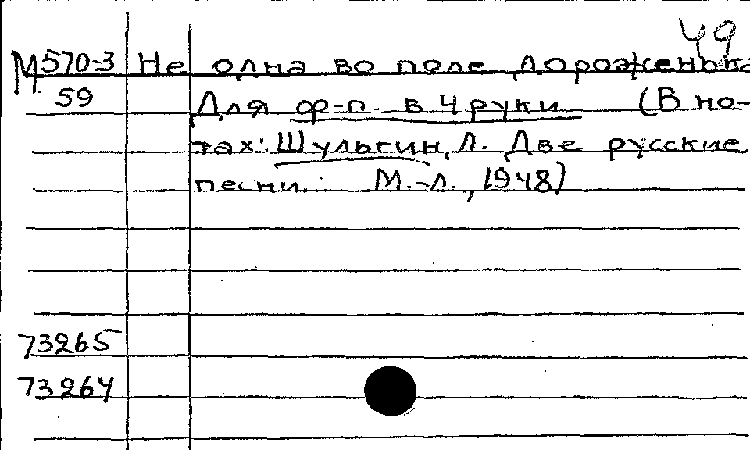 49
М 570-3 Не одна во поле дороженька
59 Для ф-п. в 4 руки (В но-
тах: Шульгин, Л. Две русские
песни. М.-Л., 1948)
73265
73264